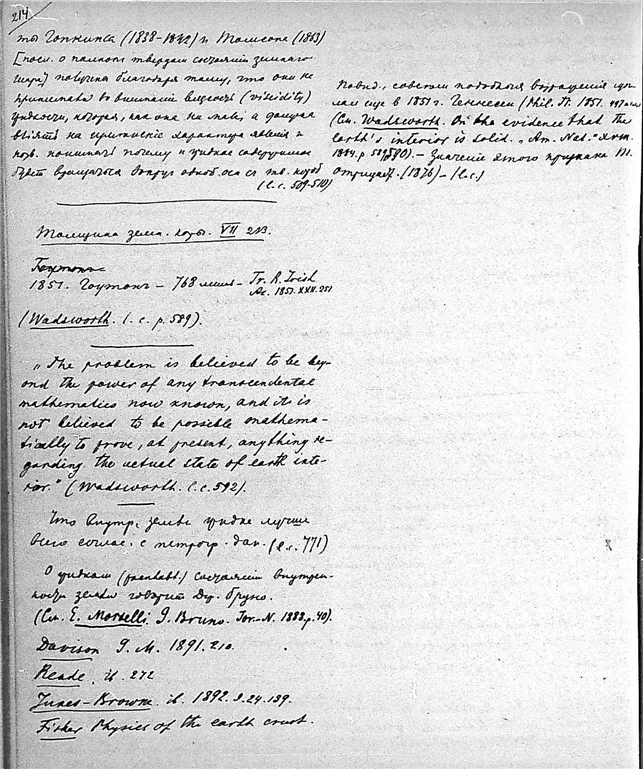 214
ты Гопкинса (1838-1842) и Томсона (1863)
[посл. о полном твердом состоянии земного
шара] получена благодаря тому, что они не
принимали во внимание вязкость (viscidity)
жидкости, которая, как она ни мала,
влияет на характер явления и
почему "жидкое содержимое
будет вращаться вокруг одной оси с тв. корой
(l. c. 509-510)
Толщина земн. коры. VII 213.
1851. Гоутон - 768 миль - Tr. R. Irish
Ac. 1851. XXII. 251
(Wadsworth. l. c. p. 589).
"The problem is believed to be bey-
ond the power of any transcendental
mathematics now known, and it is
not believed to be possible mathema-
tically to prove, at present, anything re-
garding the actual state of earth inte-
rior." (Wadsworth. l. c. 592).
Что внутр. земли жидко лучше
всего соглас. с петрогр. дан. (l. c. 771)
О жидком состоянии внутрен-
ности земли говорит Дж. Бруно.
(См. E. Morselli. G. Bruno. Tor.-N. 1888. p. 40).
Davison G. M. 1891. 210.
Reade. ib. 272
Jukes-Browne. ib. 1892. 24. 139.
Fisher Physics of the earth crust.
повид., совсем подобные возражения
еще в 1851 г. Геннесси (Phil. Tr. 1851.
(См. Wadsworth. On the evidence that the
earth's interior is solid. "Am. Nat." XVIII.
1884. p. - Значение этого признака
отрицает. (1876) - (l. c.)